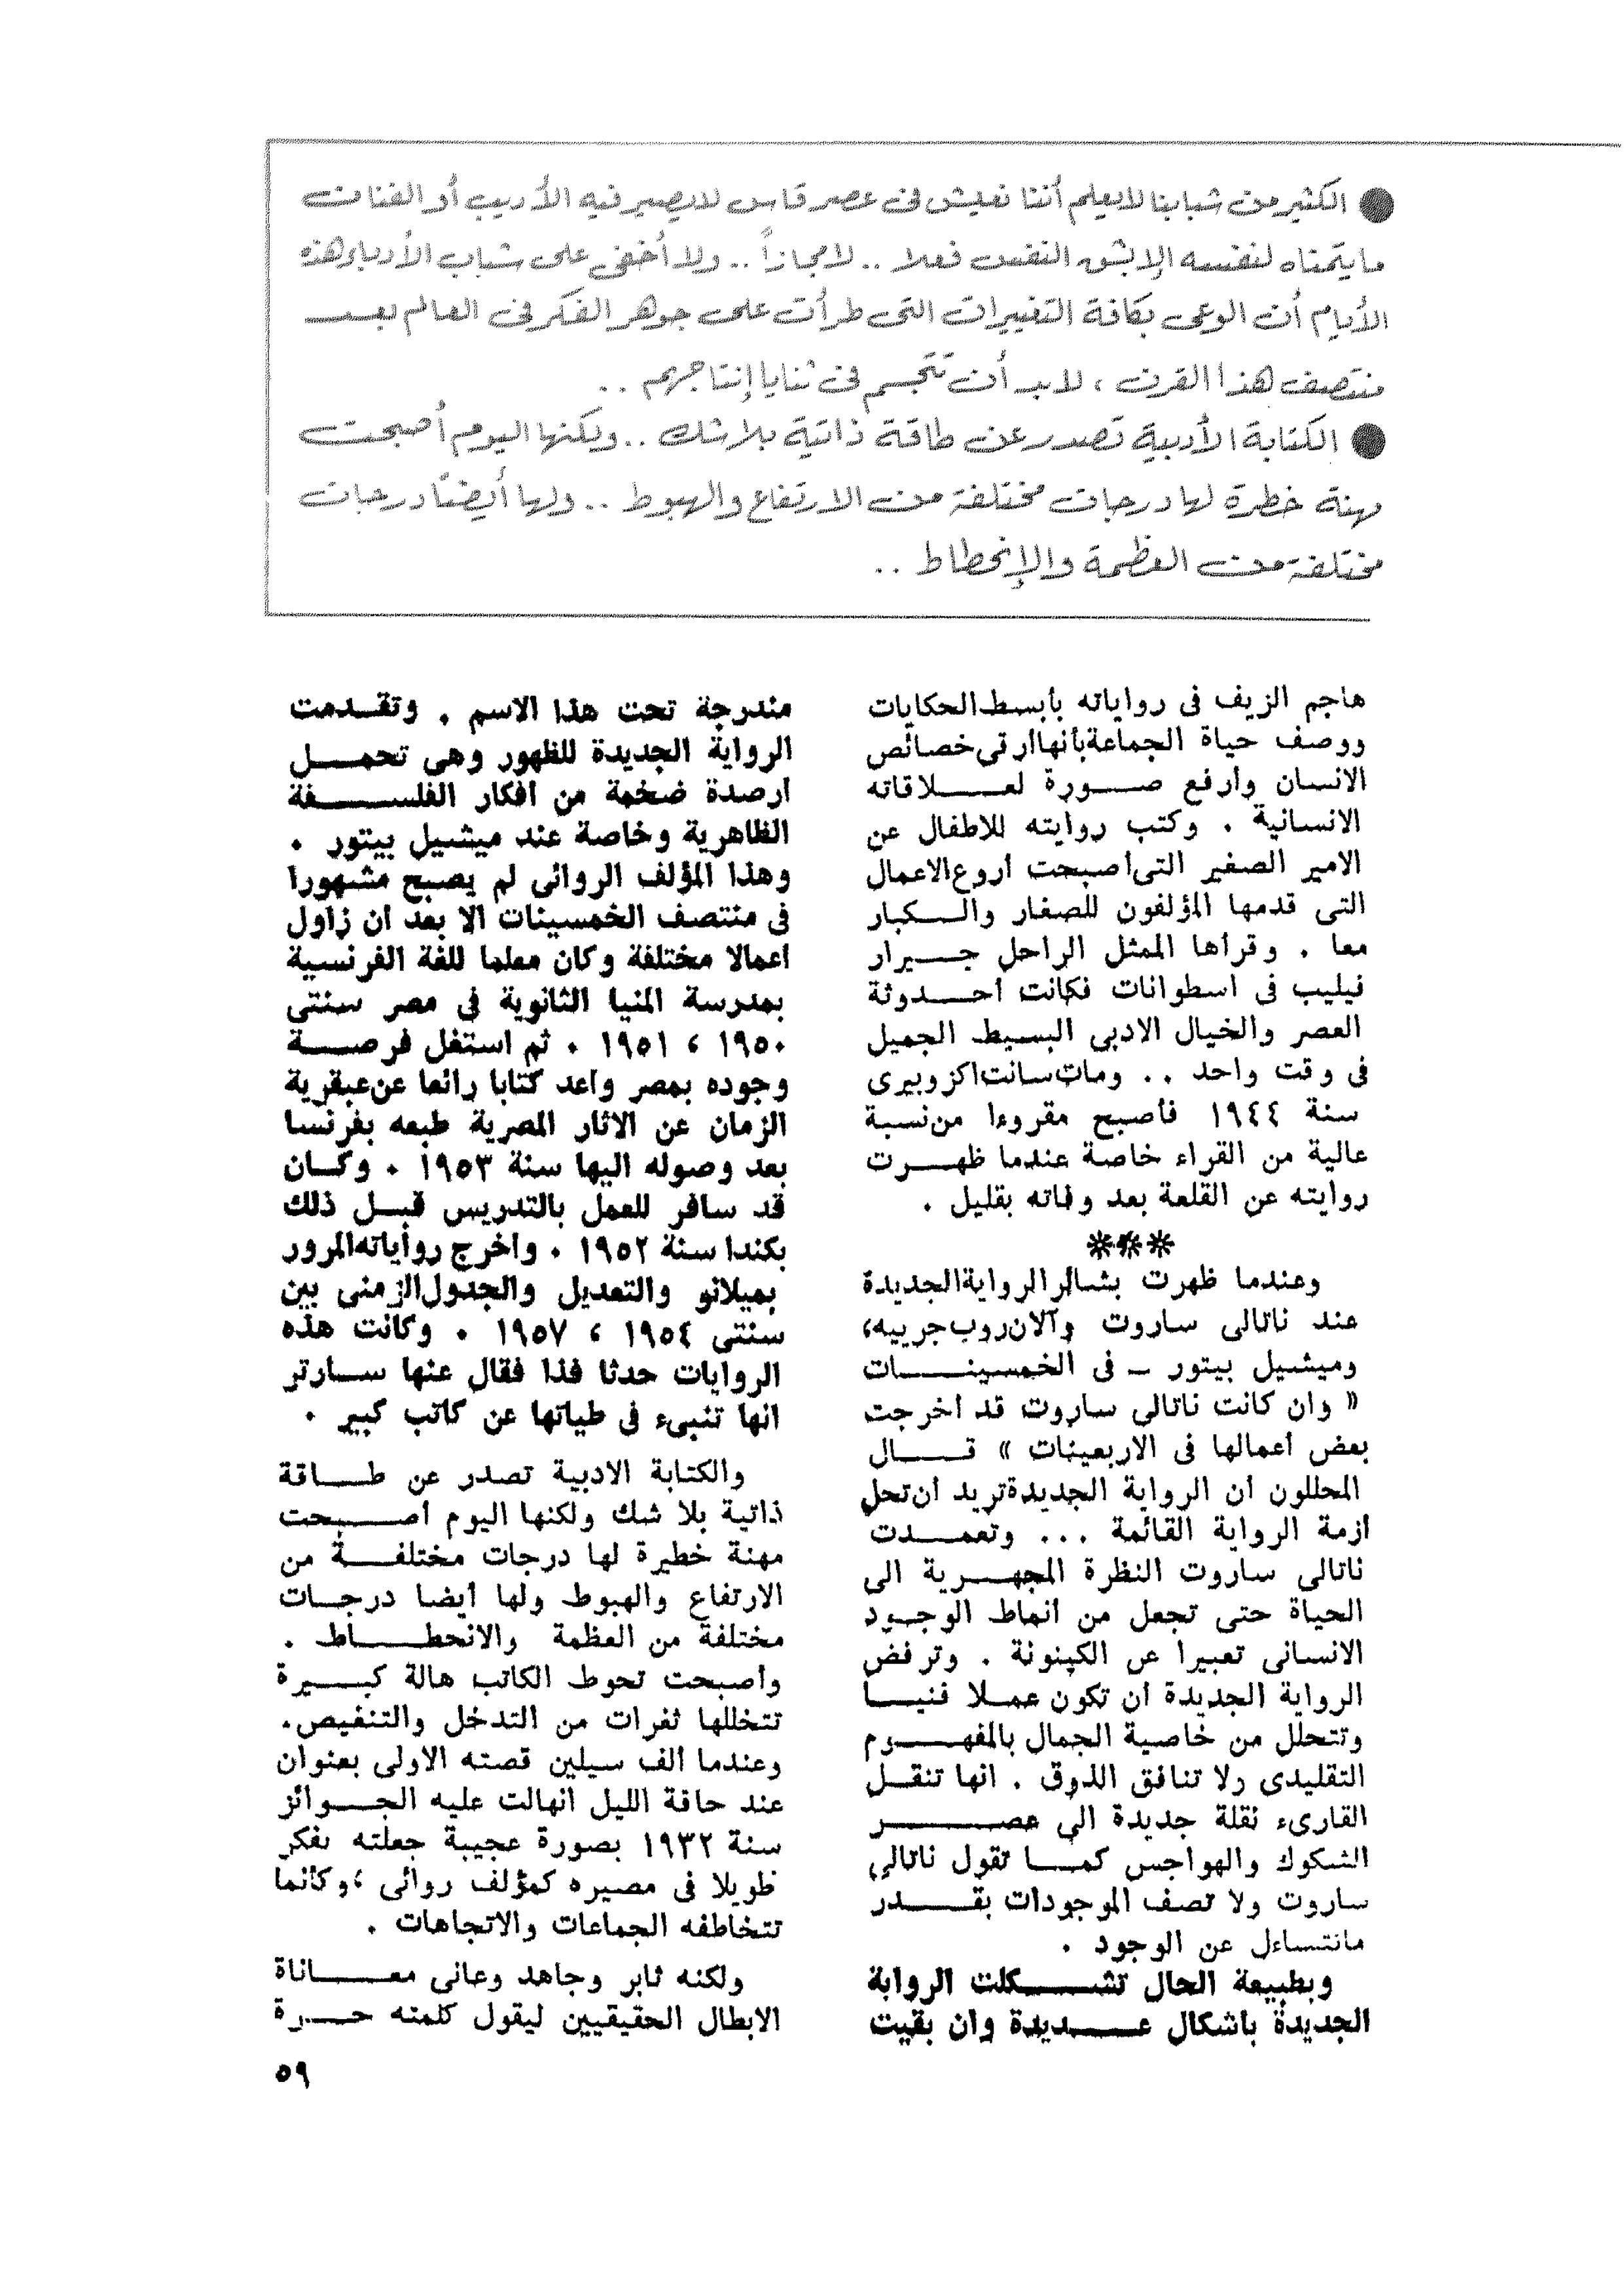 ● الكثير من شبابنا لا يعلم أننا نعيش فى عصر قاس لا يصير فيه الأديب أو الفنان
ما يتمناه لنفسه إلا بشق النفس فعلا .. لا مجازاً .. ولا أخفى على شباب الأدباء هذه
الأيام أن الوعى بكافة التغييرات التى طرأت على جوهر الفكر فى العالم بعد
منتصف هذا القرن ، لابد أن تتجسم فى ثنايا إنتاجهم ..
● الكتابة الأدبية تصدر عن طاقة ذاتية بلا شك .. ولكنها اليوم أصبحت
مهنة خطرة لها درجات مختلفة من الارتفاع والهبوط .. ولها أيضاً درجات
مختلفة من العظمة والإنحطاط ..
هاجم الزيف فى رواياته بأبسط الحكايات
ووصف حياة الجماعة بأنها أرقى خصائص
الانسان وأرفع صورة لعلاقاته
الانسانية . وكتب روايته للاطفال عن
الامير الصغير التى أصبحت أروع الاعمال
التى قدمها المؤلفون للصغار والكبار
معا . وقرأها الممثل الراحل جيرار
فيليب فى اسطوانات فكانت أحدوثة
العصر والخيال الادبى البسيط الجميل
فى وقت واحد .. ومات سانت اكزوبيرى
سنة ١٩٤٤ فأصبح مقروءا من نسبة
عالية من القراء خاصة عندما ظهرت
روايته عن القلعة بعد وفاته بقليل .
***
وعندما ظهرت بشائر الرواية الجديدة
عند ناتالى ساروت وآلان روب جرييه،
وميشيل بيتور ــ فى الخمسينات
« وان كانت ناتالى ساروت قد أخرجت
بعض أعمالها فى الاربعينات » قال
المحللون ان الرواية الجديدة تريد ان تحل
أزمة الرواية القائمة ... وتعمدت
ناتالى ساروت النظرة المجهرية الى
الحياة حتى تجعل من أنماط الوجود
الانسانى تعبيرا عن الكينونة . وترفض
الرواية الجديدة ان تكون عملا فنيا
وتتحلل من خاصية الجمال بالمفهوم
التقليدى ولا تنافق الذوق . انها تنقل
القارىء نقلة جديدة الى عصر
الشكوك والهواجس كما تقول ناتالى
ساروت ولا تصف الموجودات بقدر
ماتتساءل عن الوجود .
وبطبيعة الحال تشكلت الرواية
الجديدة بأشكال عديدة وان بقيت
مندرجة تحت هذا الاسم . وتقدمت
الرواية الجديدة للظهور وهى تحمل
ارصدة ضخمة من أفكار الفلسفة
الظاهرية وخاصة عند ميشيل بيتور .
وهذا المؤلف الروائى لم يصبح مشهورا
فى منتصف الخمسينات الا بعد ان زاول
اعمالا مختلفة وكان معلما للغة الفرنسية
بمدرسة المنيا الثانوية فى مصر سنتى
١٩٥٠ ، ١٩٥١ . ثم استغل فرصة
وجوده بمصر واعد كتابا رائعا عن عبقرية
الزمان عن الاثار المصرية طبعه بفرنسا
بعد وصوله اليها سنة ١٩٥٣ . وكان
قد سافر للعمل بالتدريس قبل ذلك
بكندا سنة ١٩٥٢ . وأخرج رواياته المرور
بميلانو والتعديل والجدول الزمنى بين
سنتى ١٩٥٤ ، ١٩٥٧ . وكانت هذه
الروايات حدثا فذا فقال عنها سارتر
انها تنبىء فى طياتها عن كاتب كبير .
والكتابة الادبية تصدر عن طاقة
ذاتية بلا شك ولكنها اليوم أصبحت
مهنة خطيرة لها درجات مختلفة من
الارتفاع والهبوط ولها أيضا درجات
مختلفة من العظمة والانحطاط .
وأصبحت تحوط الكاتب هالة كبيرة
تتخللها ثغرات من التدخل والتنغيص.
وعندما الف سيلين قصته الاولى بعنوان
عند حافة الليل انهالت عليه الجوائز
سنة ١٩٣٢ بصورة عجيبة جعلته يفكر
طويلا فى مصيره كمؤلف روائى ،وكأنما
تتخاطفه الجماعات والاتجاهات .
ولكنه ثابر وجاهد وعانى معاناة
الابطال الحقيقيين ليقول كلمته حرة
٥٩